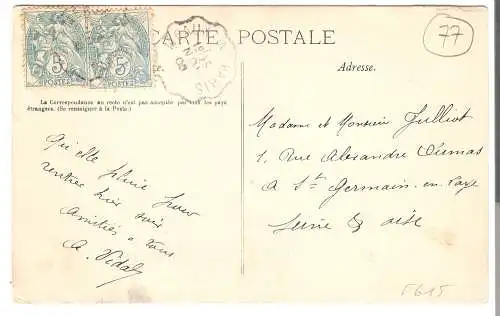 CARTE POSTALE
77
5 POSTES 5
PARIS
La Correspondance au recto n'est pas acceptée par tous les pays
étrangers. (Se renseigner à la Poste.)
Adresse.
Qu'elle pluie
rentrée
Amitiés à tous
A. Vidal
Madame et Monsieur Julliot
1, Rue Alexandre Dumas
A St Germain-en-Laye
Seine & Oise
5615